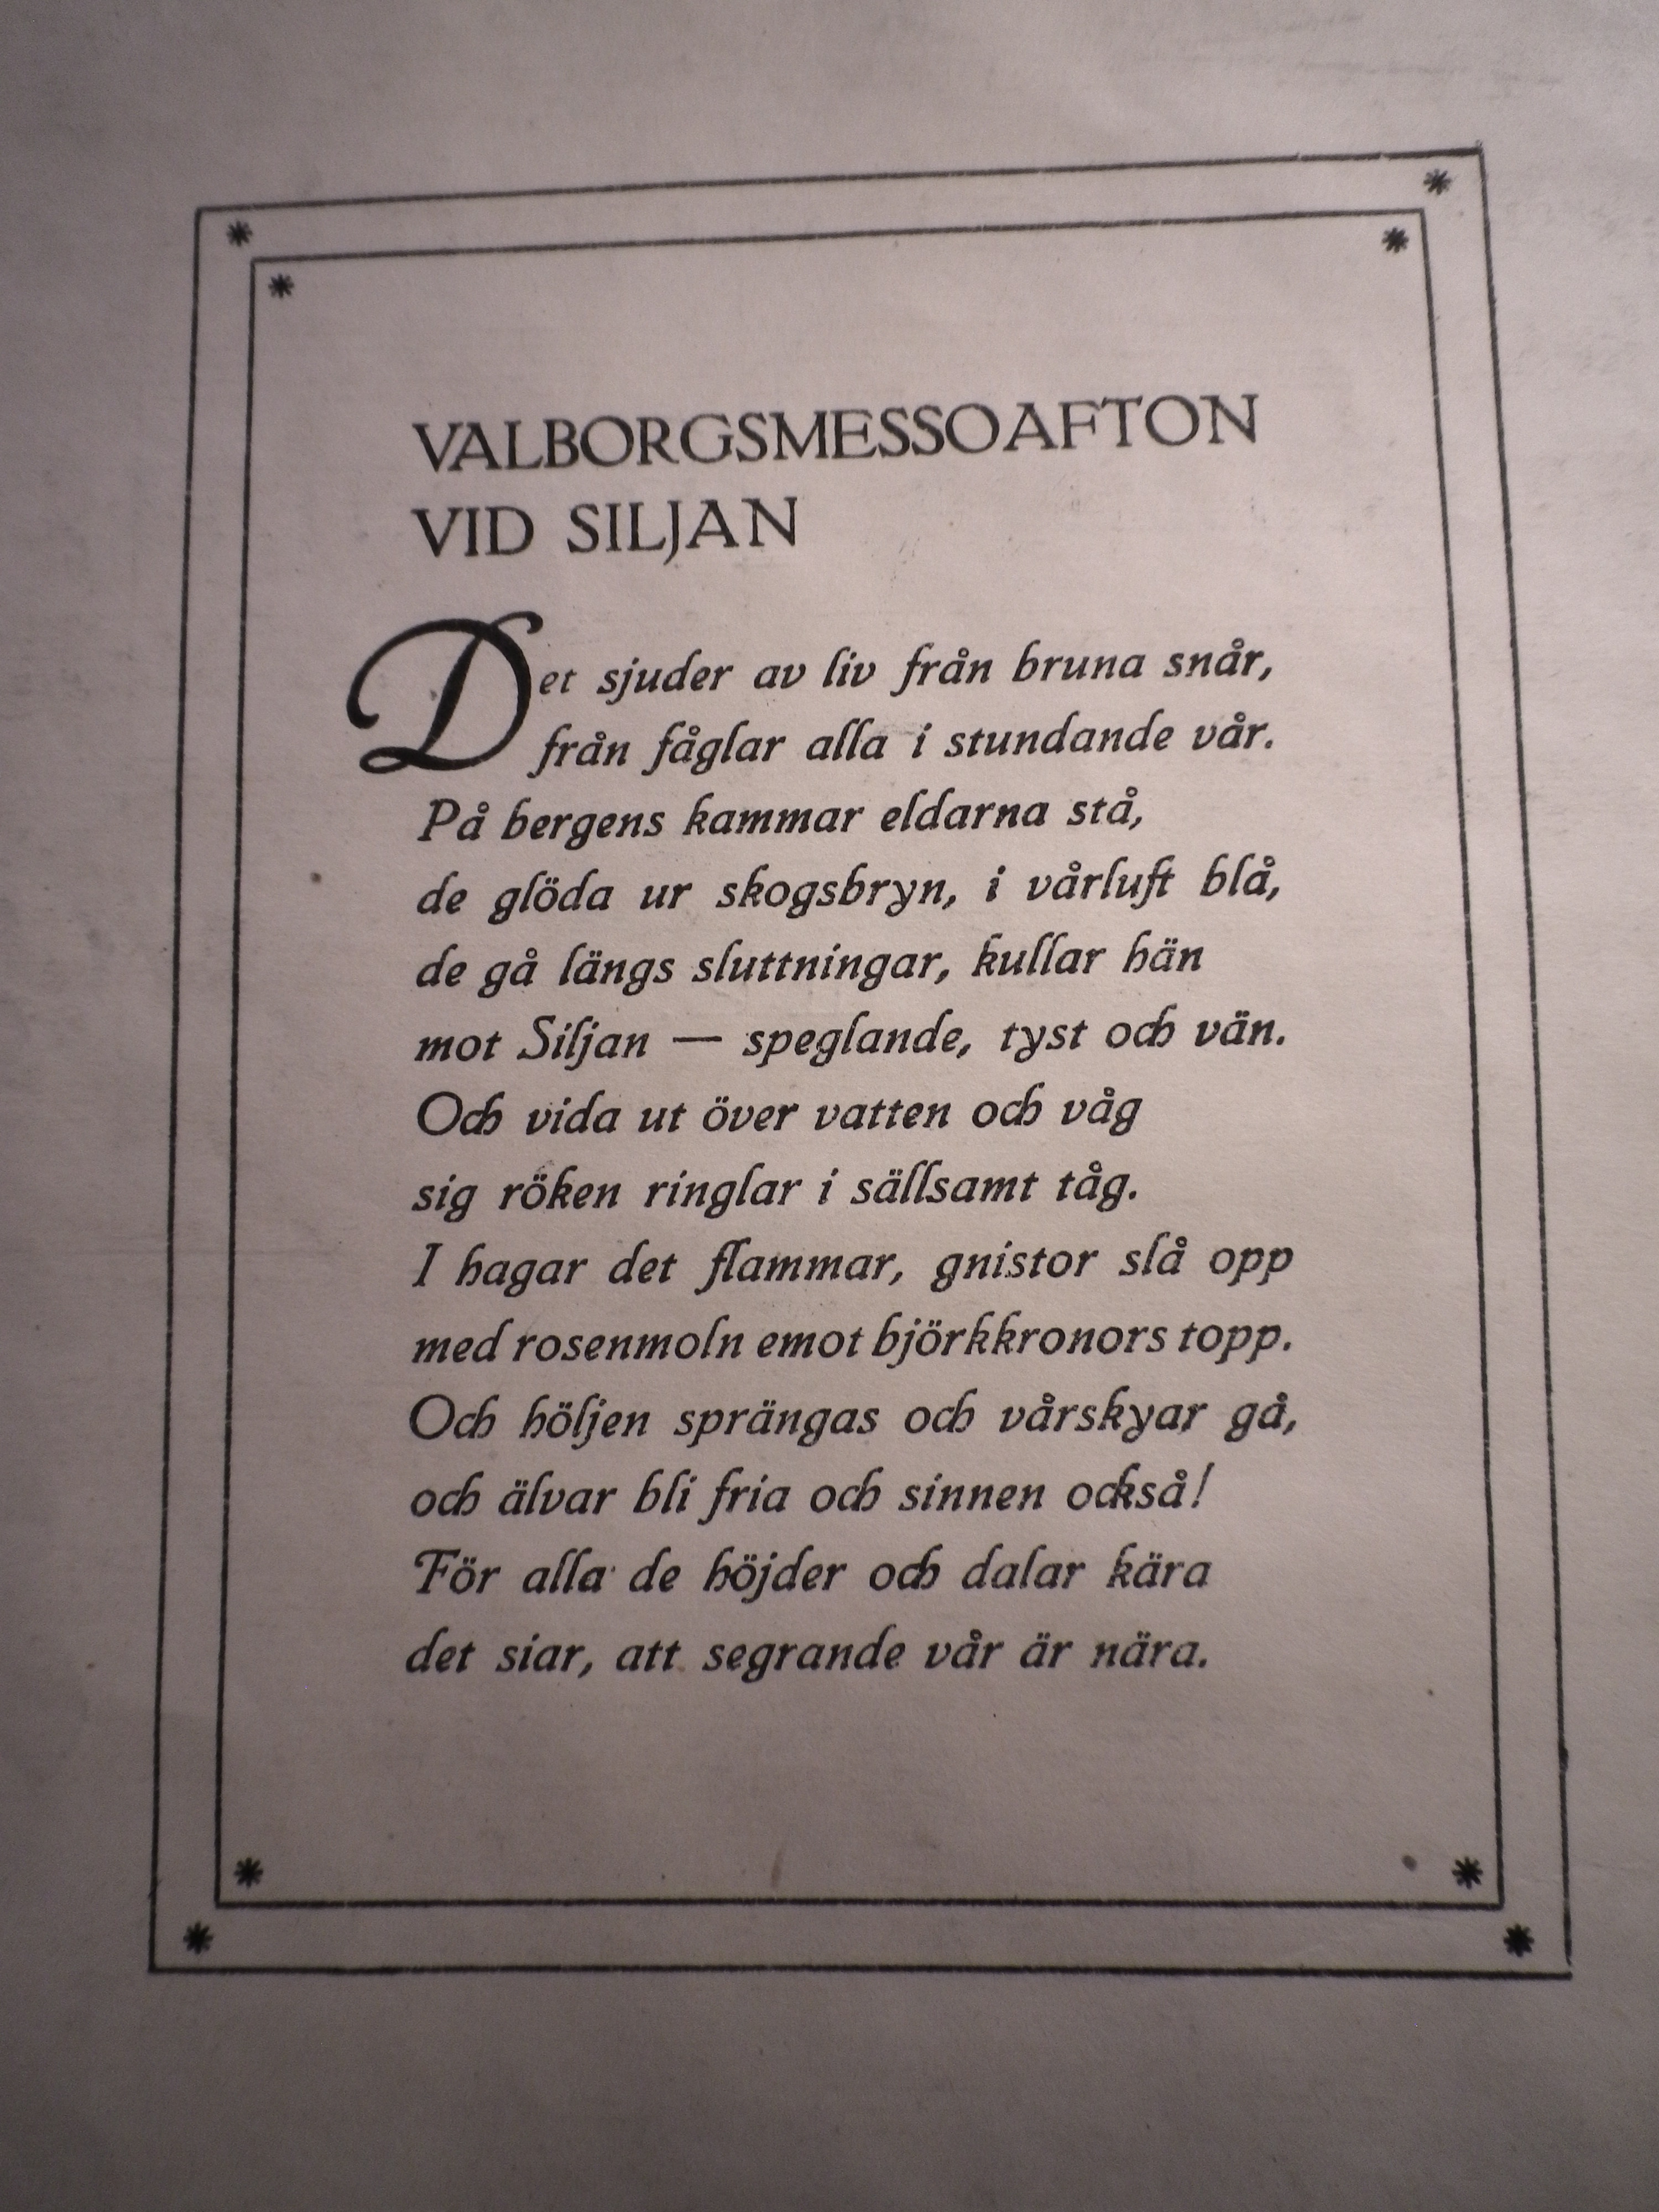 VALBORGSMESSOAFTON
VID SILJAN
Det sjuder av liv från bruna snår,
från fåglar alla i stundande vår.
På bergens kammar eldarna stå,
de glöda ur skogsbryn, i vårluft blå,
de gå längs sluttningar, kullar hän
mot Siljan — speglande, tyst och vän.
Och vida ut över vatten och våg
sig röken ringlar i sällsamt tåg.
I hagar det flammar, gnistor slå opp
med rosenmoln emot björkkronors topp.
Och höljen sprängas och vårskyar gå,
och älvar bli fria och sinnen också!
För alla de höjder och dalar kära
det siar, att segrande vår är nära.